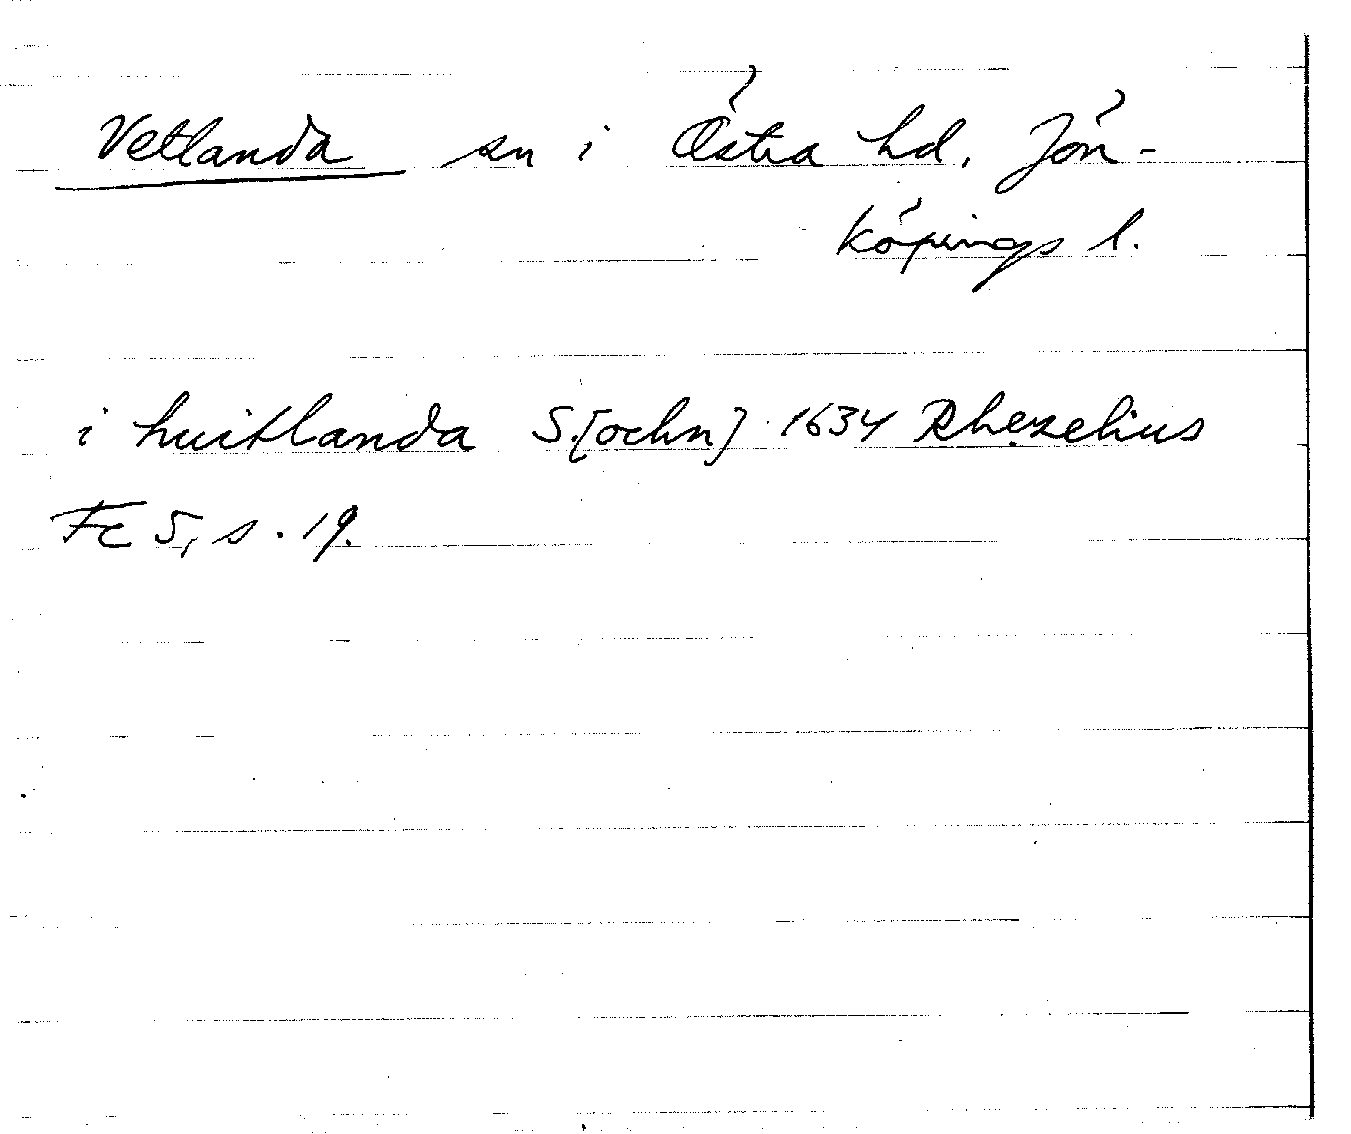 Vetlanda sn i Östra hd, Jön-
köpings l.
i huitlanda S.[ochn] 1634 Rhezelius
Fc 5, s. 19.